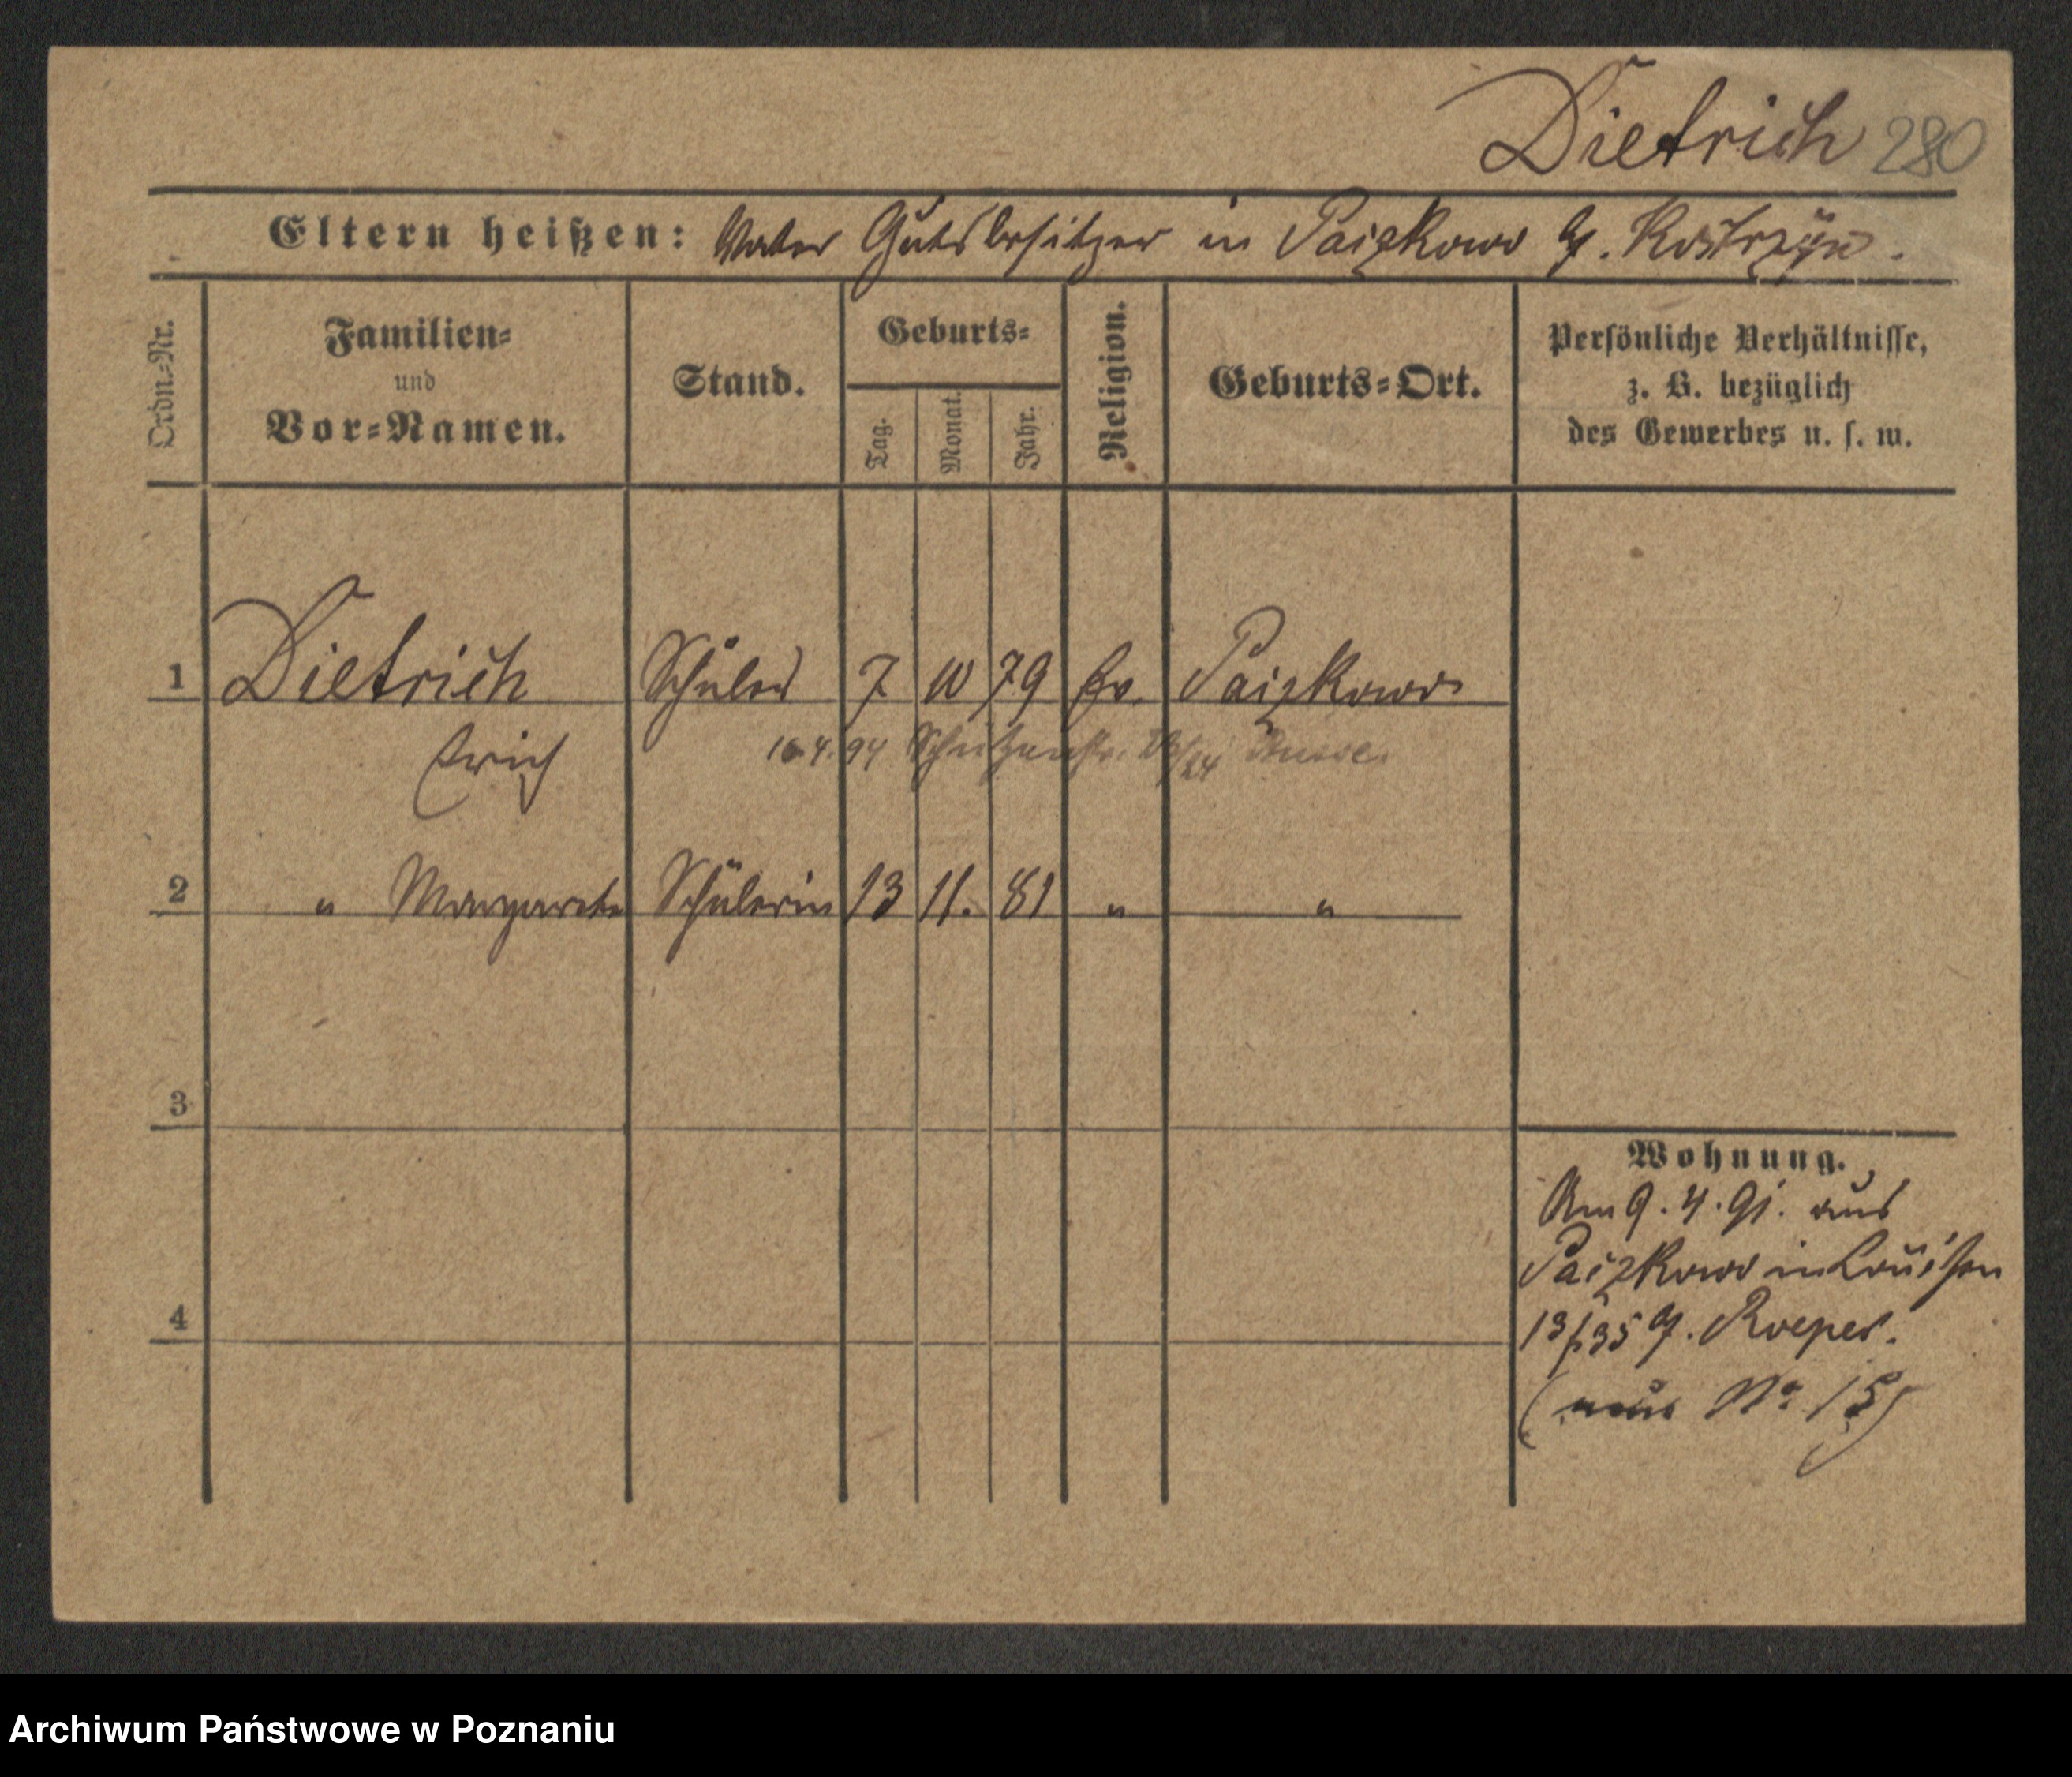 Dietrich 280
Eltern heißen: Vater Gutsbesitzer in Paizkowo b/. Kostrzyn.
Ordn.-Nr.
Familien-
und
Vor-Namen.
Stand.
Geburts-
Tag.
Monat.
Jahr.
Religion.
Geburts-Ort.
Persönliche Verhältnisse,
z. B. bezüglich
des Gewerbes u. s. w.
1 Dietrich Schüler 7 10 79 Ev. Paizkowo
Erich 16.4.94 Schützenstr.
2 " Margarethe Schülerin 13 11. 81 " "
3
4
Wohnung.
Am 9. 4. 91. aus
Paizkowo in Louisen
13/ 35 b/. Roeper.
(neue No 15)
Archiwum Państwowe w Poznaniu